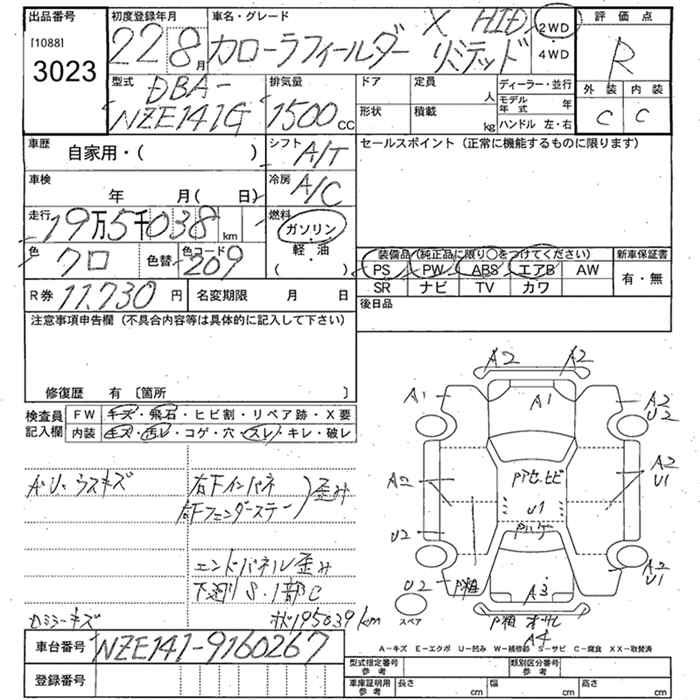 出品番号
[1088]
3023
初度登録年月
22 8月
車名・グレード
カローラフィールダー X HID リミテッド
2WD
・
4WD
評価点
R
外装 内装
C C
型式
DBA-
NZE141G
排気量
1500cc
ドア
形状
定員 人
積載 kg
ディーラー・並行
モデル年式 年
ハンドル 左・右
車歴
自家用・( )
シフト
A/T
セールスポイント(正常に機能するものに限ります)
車検
年 月( 日)
冷房
A/C
走行
19万5千038km
燃料
ガソリン
軽・油
( )
色
クロ
色替
色コード
209
装備品(純正品に限り○をつけてください)
新車保証書
PS PW ABS エアB AW
有・無
SR ナビ TV カワ
R券 11.730円
名変期限 月 日
後日品
注意事項申告欄(不具合内容等は具体的に記入して下さい)
修復歴 有〔箇所 〕
検査員
記入欄
FW キズ・飛石・ヒビ割・リペア跡・X要
内装 キズ・汚レ・コゲ・穴・スレ・キレ・破レ
A・U・ウスキズ
右下インパネ
右下フェンダーステー
歪み
エンドパネル歪み
下廻りS・1部C
ロミラーキズ
状195039km
A2 A2
A1 A1 A2
U2
A2 Pアセ.ヒビ A2
U1
U1
U2
U2 P粗 A3 A2
U1
スペア
P粗
A4
A-キズ E-エクボ U-凹み W-補修跡 S-サビ C-腐食 XX-取替済
車台番号
NZE141-9160267
登録番号
型式指定番号
参考
類別区分番号
参考
車庫証明用
参考
長さ cm
幅 cm
高さ cm